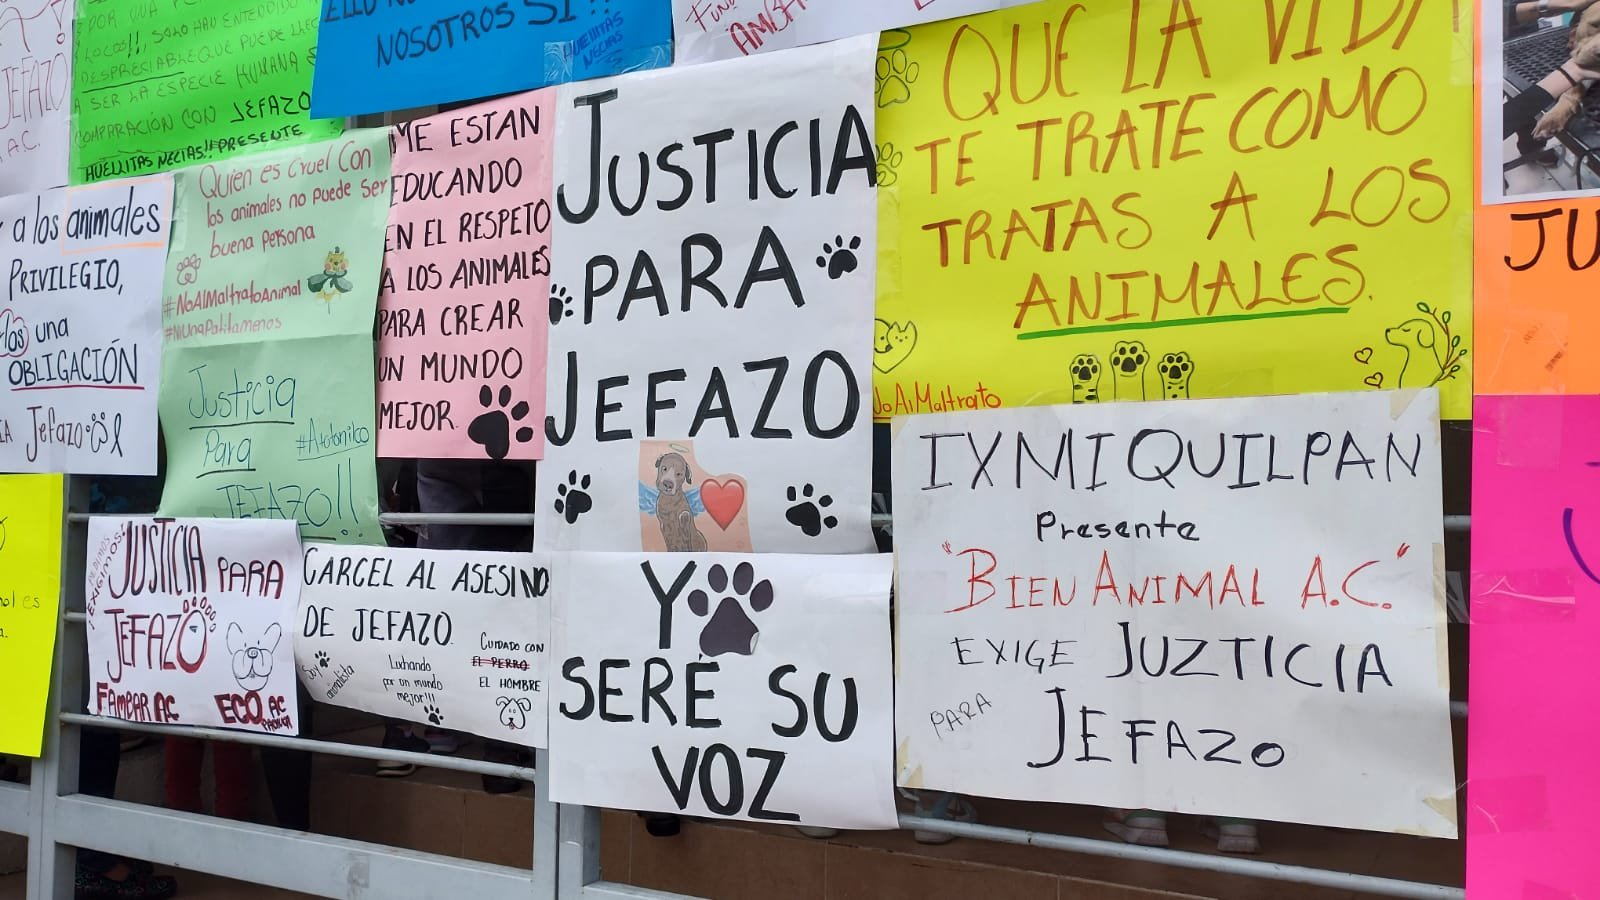 JEFAZO
A.C.
POR UNA PE
LOCOS!!, SOLO HAN ENTENDIDO
DESPRECIABLE QUE PUEDE LLEG
A SER LA ESPECIE HUMANA
COMPARACIÓN CON JEFAZO
HUELLITAS NECIAS!! PRESENTE
NOSOTROS SI!!
HUELLITAS
NECIAS
a los animales
PRIVILEGIO,
una
OBLIGACIÓN
Jefazo
Quien es cruel Con
los animales no puede ser
buena persona
#NoAlMaltratoAnimal
#NiUnaPatitamenos
Justicia
Para
#Atotonilco
JEFAZO!!
ME ESTAN
EDUCANDO
EN EL RESPETO
A LOS ANIMALES
PARA CREAR
UN MUNDO
MEJOR.
JUSTICIA
PARA
JEFAZO
QUE LA VIDA
TE TRATE COMO
TRATAS A LOS
ANIMALES.
NoAlMaltrato
JU
PEDIMOS
¡EXIGIMOS!
JUSTICIA PARA
JEFAZO
FAMBAR AC
ECO AC
PACHUCA
CARCEL AL ASESINO
DE JEFAZO.
Soy
animalista
Luchando
por un mundo
mejor!!!
CUIDADO CON
EL PERRO
EL HOMBRE
YO
SERÉ SU
VOZ
IXMIQUILPAN
Presente
"BIEN ANIMAL A.C."
EXIGE JUZTICIA
PARA
JEFAZO